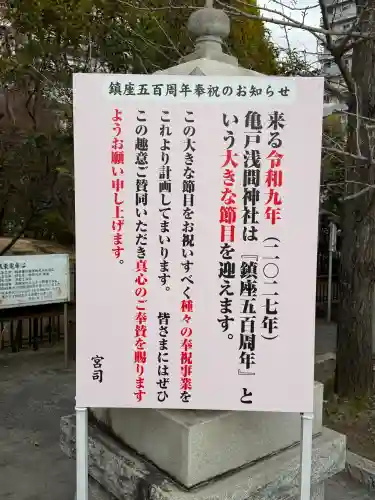 鎮座五百周年奉祝のお知らせ
来る令和九年（二〇二七年）
亀戸浅間神社は『鎮座五百周年』と
いう大きな節目を迎えます。
この大きな節目をお祝いすべく種々の奉祝事業を
これより計画してまいります。皆さまにはぜひ
この趣意ご賛同いただき真心のご奉賛を賜ります
ようお願い申し上げます。
宮司